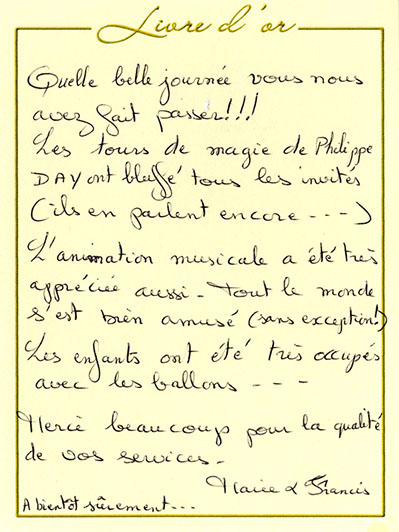 Livre d'or
Quelle belle journée vous nous
avez fait passer!!!
Les tours de magie de Philippe
DAY ont bluffé tous les invités
(ils en parlent encore - - -)
L'animation musicale a été très
appréciée aussi - Tout le monde
s'est bien amusé (sans exception!)
Les enfants ont été très occupés
avec les ballons - - -
Merci beaucoup pour la qualité
de vos services -
& Francis
A bientôt sûrement...